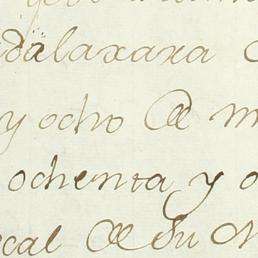 dalaxara
y ocho de m
ochenta y o
cal de Su M